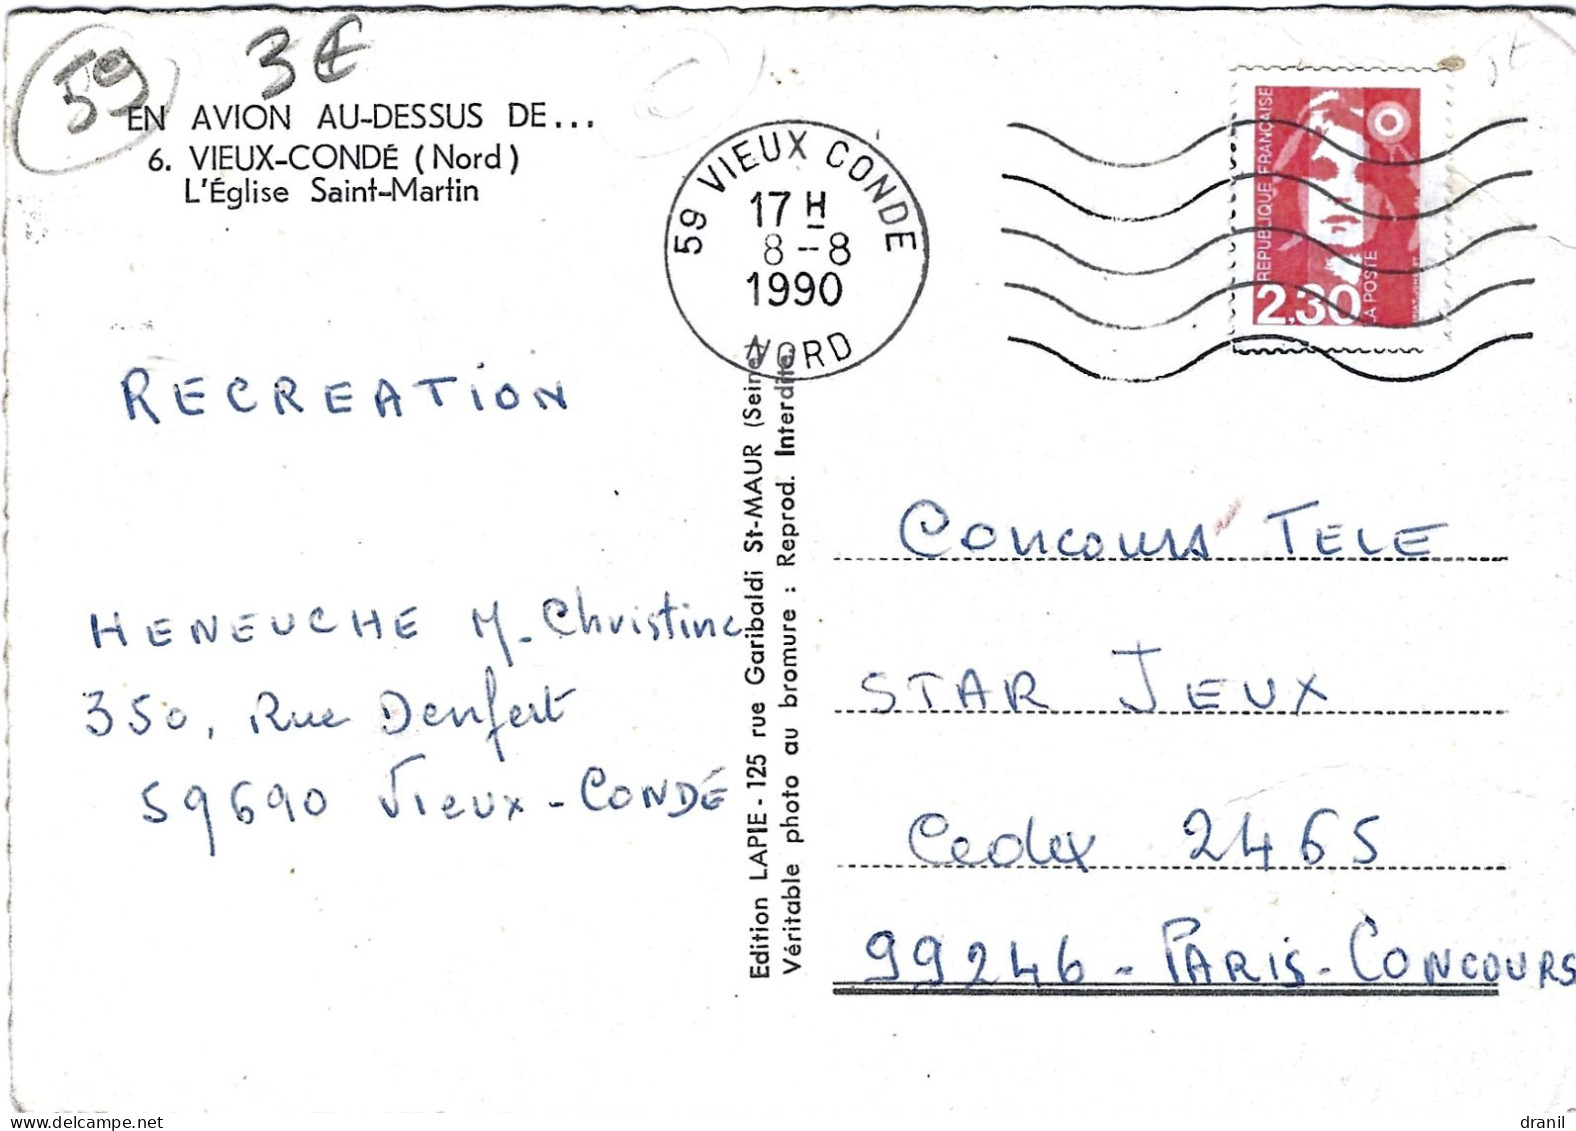 59 3€
EN AVION AU-DESSUS DE...
6. VIEUX-CONDÉ (Nord)
L'Église Saint-Martin
59 VIEUX CONDE
17 H
8 - 8
1990
NORD
RÉPUBLIQUE FRANÇAISE
2,30
LA POSTE
RECREATION
HENEUCHE M-Christine
350, Rue Denfert
59690 Vieux-CONDÉ
Edition LAPIE - 125 rue Garibaldi St-MAUR (Seine)
Véritable photo au bromure : Reprod. Interdite.
Concours TELE
STAR JEUX
Cedex 2465
99246 - PARIS - CONCOURS
delcampe.net
dranil